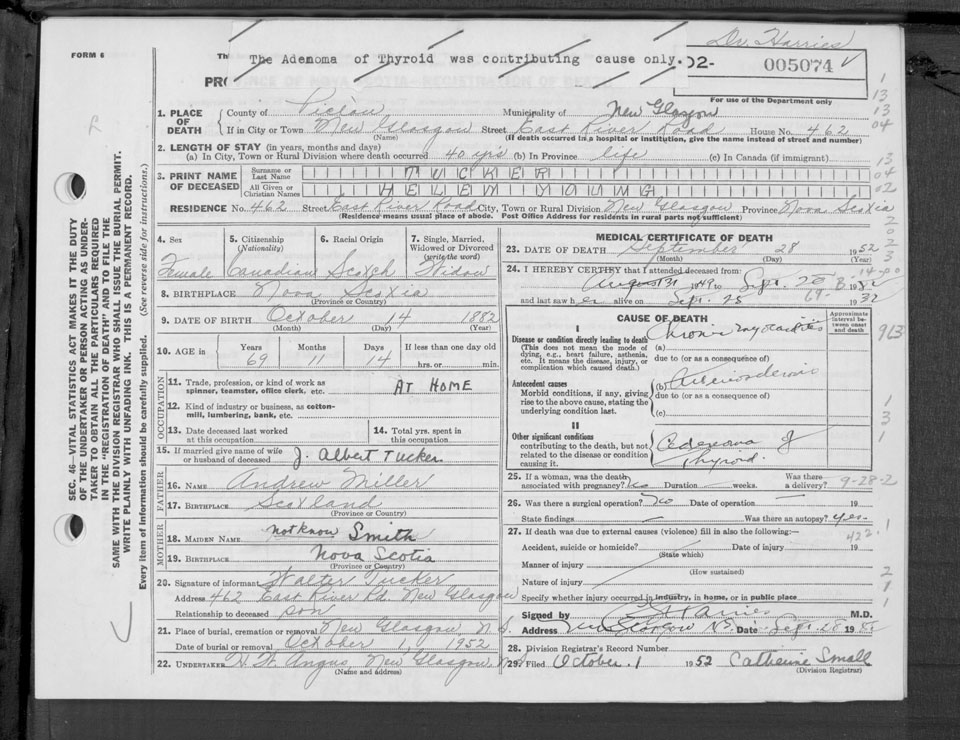 Dr. Harries
FORM 6
The Adenoma of Thyroid was contributing cause only.
02- 005074
For use of the Department only
1. PLACE OF DEATH
County of Pictou Municipality of New Glasgow
If in City or Town New Glasgow Street East River Road House No. 462
(Name) (If death occurred in a hospital or institution, give the name instead of street and number)
2. LENGTH OF STAY (in years, months and days)
(a) In City, Town or Rural Division where death occurred 40 yrs (b) In Province life (c) In Canada (if immigrant)
3. PRINT NAME OF DECEASED
Surname or Last Name TUCKER
All Given or Christian Names HELEN YOUNG
RESIDENCE No. 462 Street East River Road City, Town or Rural Division New Glasgow Province Nova Scotia
(Residence means usual place of abode. Post Office Address for residents in rural parts not sufficient)
4. Sex 5. Citizenship (Nationality) 6. Racial Origin 7. Single, Married, Widowed or Divorced (write the word)
Female Canadian Scotch Widow
8. BIRTHPLACE Nova Scotia
(Province or Country)
9. DATE OF BIRTH October 14 1882
(Month) (Day) (Year)
10. AGE in Years Months Days If less than one day old
69 11 14 hrs. or min.
OCCUPATION
11. Trade, profession, or kind of work as spinner, teamster, office clerk, etc. AT HOME
12. Kind of industry or business, as cotton-mill, lumbering, bank, etc.
13. Date deceased last worked at this occupation 14. Total yrs. spent in this occupation
15. If married give name of wife or husband of deceased J. Albert Tucker
FATHER
16. NAME Andrew Miller
17. BIRTHPLACE Scotland
(Province or Country)
MOTHER
18. MAIDEN NAME not know Smith
19. BIRTHPLACE Nova Scotia
(Province or Country)
20. Signature of informant Walter Tucker
Address 462 East River Rd. New Glasgow
Relationship to deceased son
21. Place of burial, cremation or removal New Glasgow, N.S.
Date of burial or removal October 1, 1952
22. UNDERTAKER H. W. Angus, New Glasgow, N.S.
(Name and address)
MEDICAL CERTIFICATE OF DEATH
23. DATE OF DEATH September 28 1952
(Month) (Day) (Year)
24. I HEREBY CERTIFY that I attended deceased from
August 31 1949 Sept. 1952
and last saw her alive on Sept. 25 1952
CAUSE OF DEATH
Approximate interval between onset and death
I
Disease or condition directly leading to death
(This does not mean the mode of dying, e.g., heart failure, asthenia, etc. It means the disease, injury, or complication which caused death.)
(a) Chronic myocarditis
due to (or as a consequence of)
Antecedent causes
Morbid conditions, if any, giving rise to the above cause, stating the underlying condition last.
(b) Arteriosclerosis
due to (or as a consequence of)
(c)
II
Other significant conditions
contributing to the death, but not related to the disease or condition causing it.
Adenoma of Thyroid.
25. If a woman, was the death associated with pregnancy? No Duration weeks. Was there a delivery?
9-28-2
26. Was there a surgical operation? No Date of operation 19
State findings Was there an autopsy? yes
27. If death was due to external causes (violence) fill in also the following:—
422.1
Accident, suicide or homicide? Date of injury 19
(State which)
Manner of injury
(How sustained)
Nature of injury
Specify whether injury occurred in industry, in home, or in public place
Signed by M.D.
Address New Glasgow N.S. Date Sept. 28 1952
28. Division Registrar's Record Number
29. Filed October 1 1952 Catherine Small
(Division Registrar)
SEC. 46—VITAL STATISTICS ACT MAKES IT THE DUTY
OF THE UNDERTAKER OR PERSON ACTING AS UNDER-
TAKER TO OBTAIN ALL THE PARTICULARS REQUIRED
IN THE "REGISTRATION OF DEATH" AND TO FILE THE
SAME WITH THE DIVISION REGISTRAR WHO SHALL ISSUE THE BURIAL PERMIT.
WRITE PLAINLY WITH UNFADING INK. THIS IS A PERMANENT RECORD.
Every item of information should be carefully supplied. (See reverse side for instructions.)